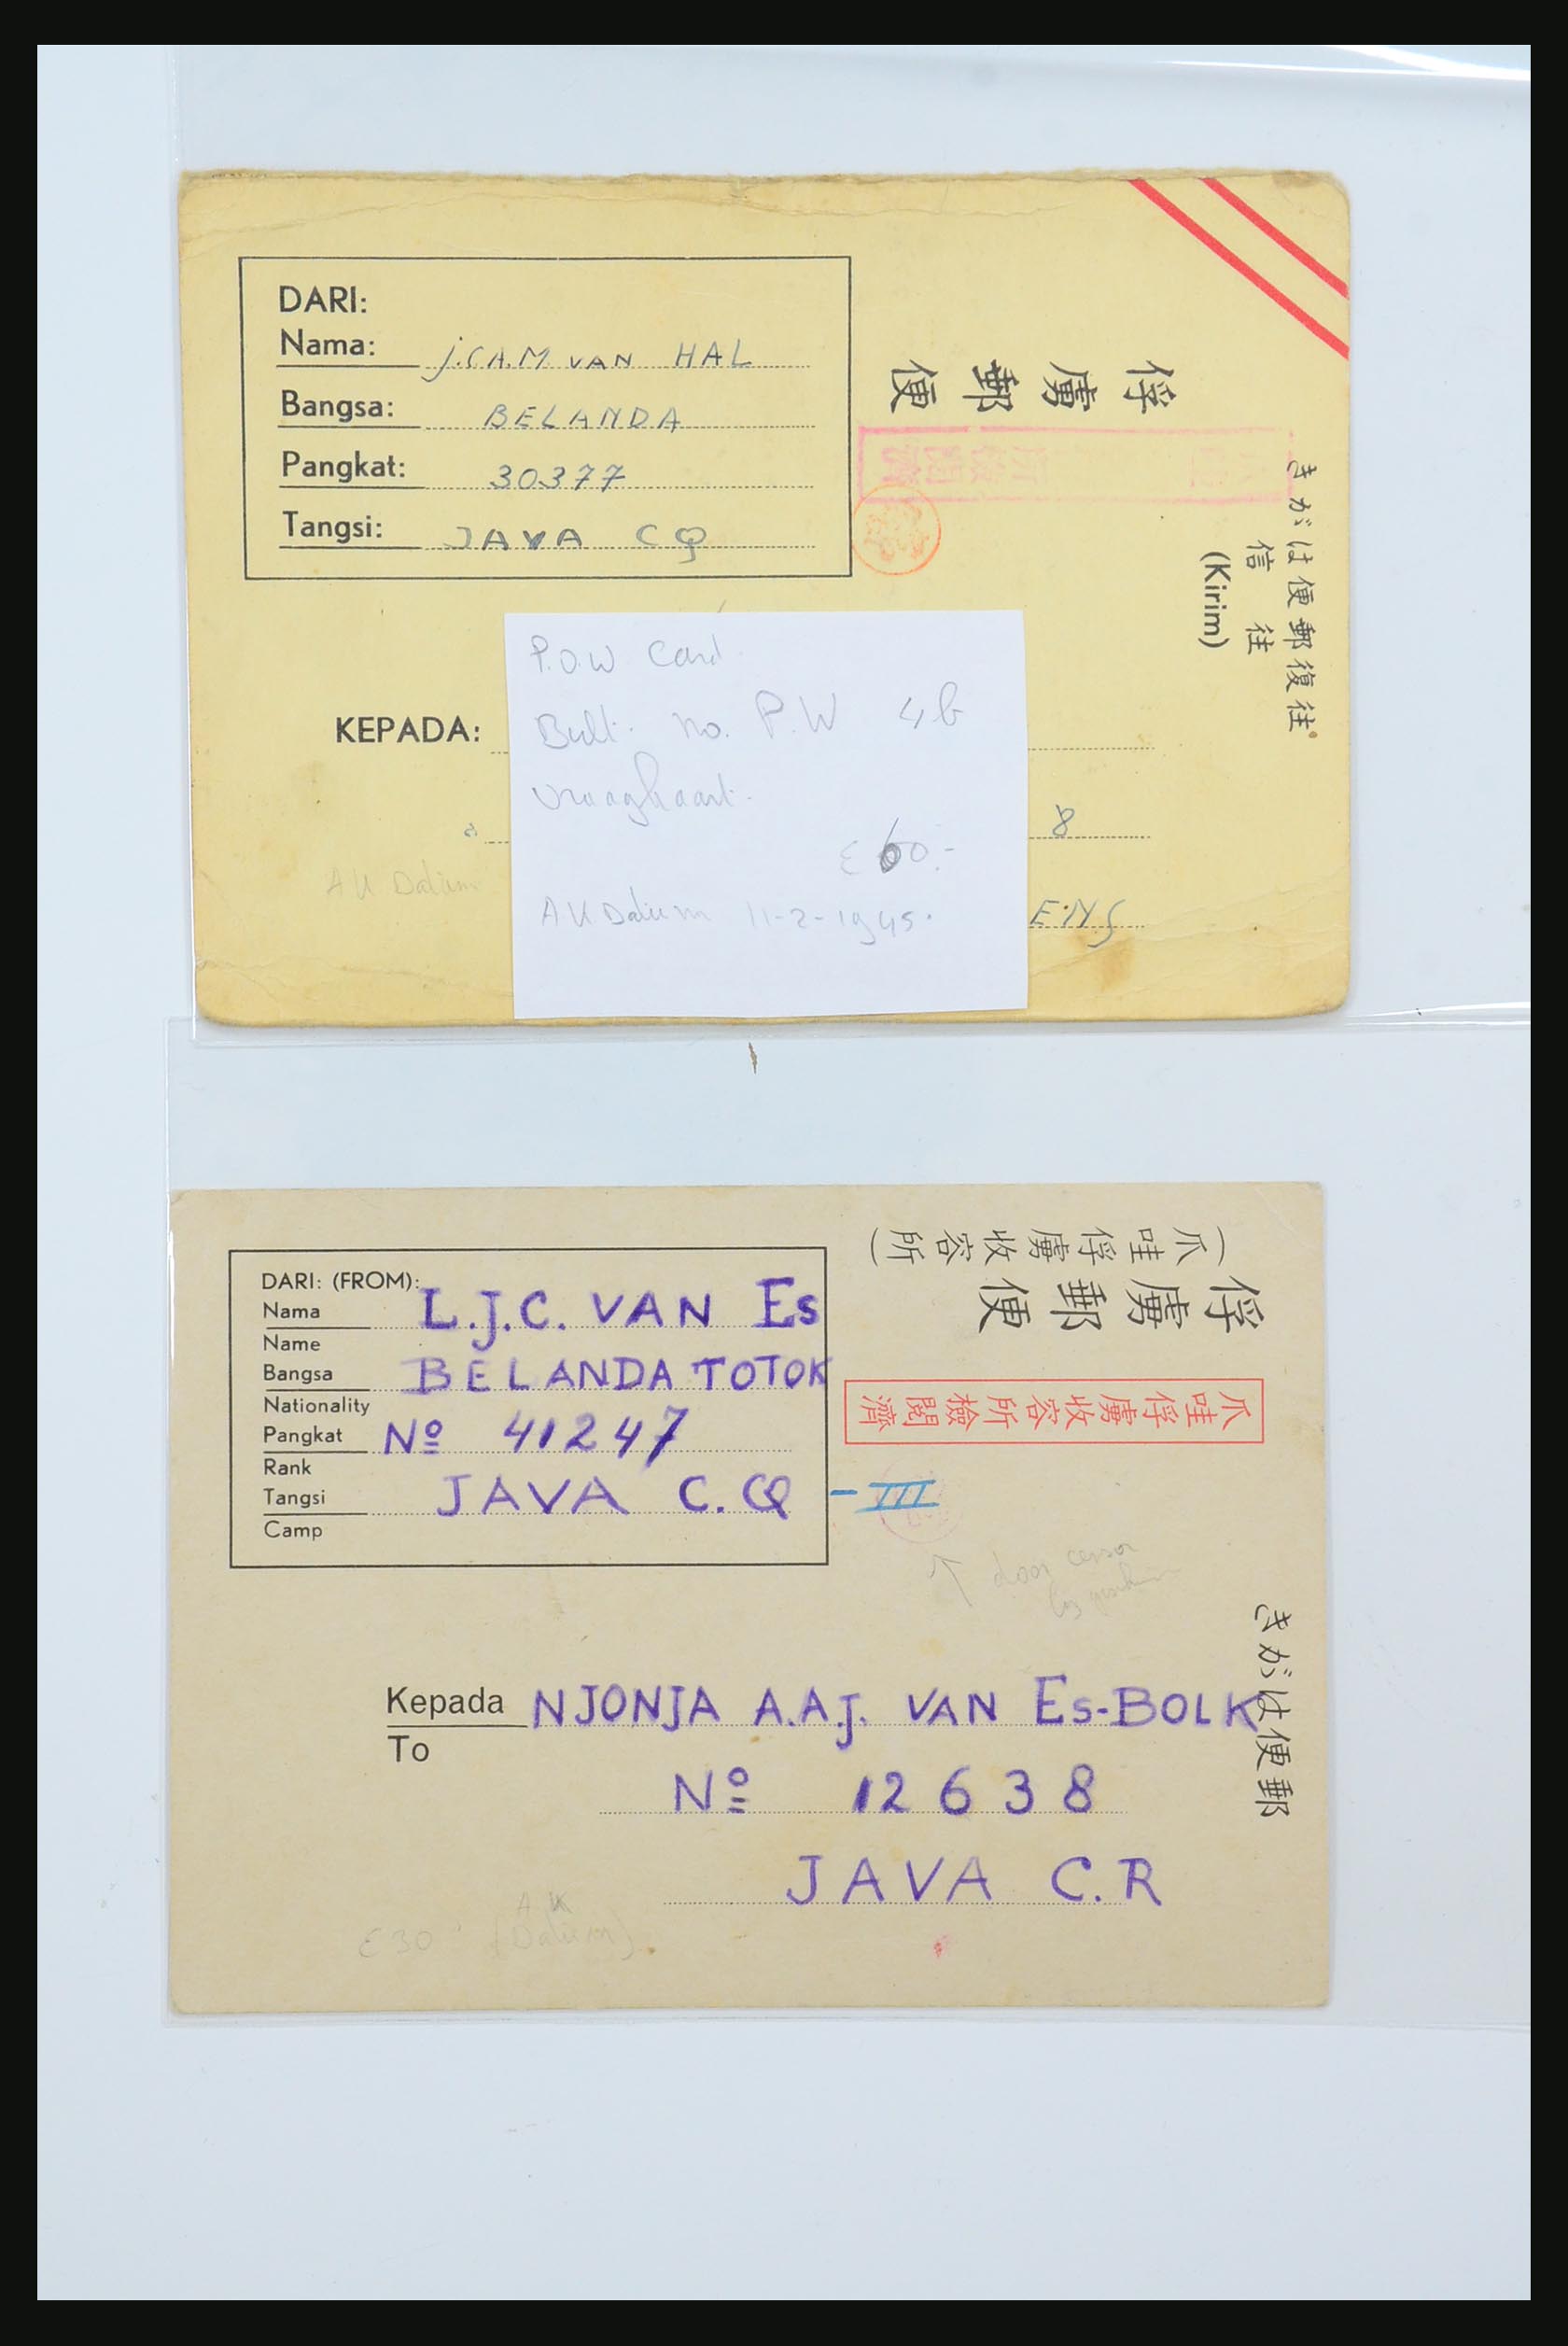 DARI:
Nama: J.C.A.M. VAN HAL
Bangsa: BELANDA
Pangkat: 30377
Tangsi: JAVA CQ
俘虜郵便
往復郵便はがき
往信
(Kirim)
KEPADA:
8
ENS
AK Datum
P.O.W Card
Bult. no. P.W 4b
Vraagkaart.
€ 60.-
AK Datum 11-2-1945.
(爪哇俘虜收容所)
俘虜郵便
爪哇俘虜收容所檢閲濟
郵便はがき
DARI: (FROM):
Nama L.J.C. VAN Es
Name
Bangsa BELANDA TOTOK
Nationality
Pangkat Nº 41247
Rank
Tangsi JAVA C.Q - III
Camp
door censor
Kepada NJONJA A.A.J. VAN Es-BOLK
To
Nº 12638
JAVA C.R
€ 30 (AK Datum)